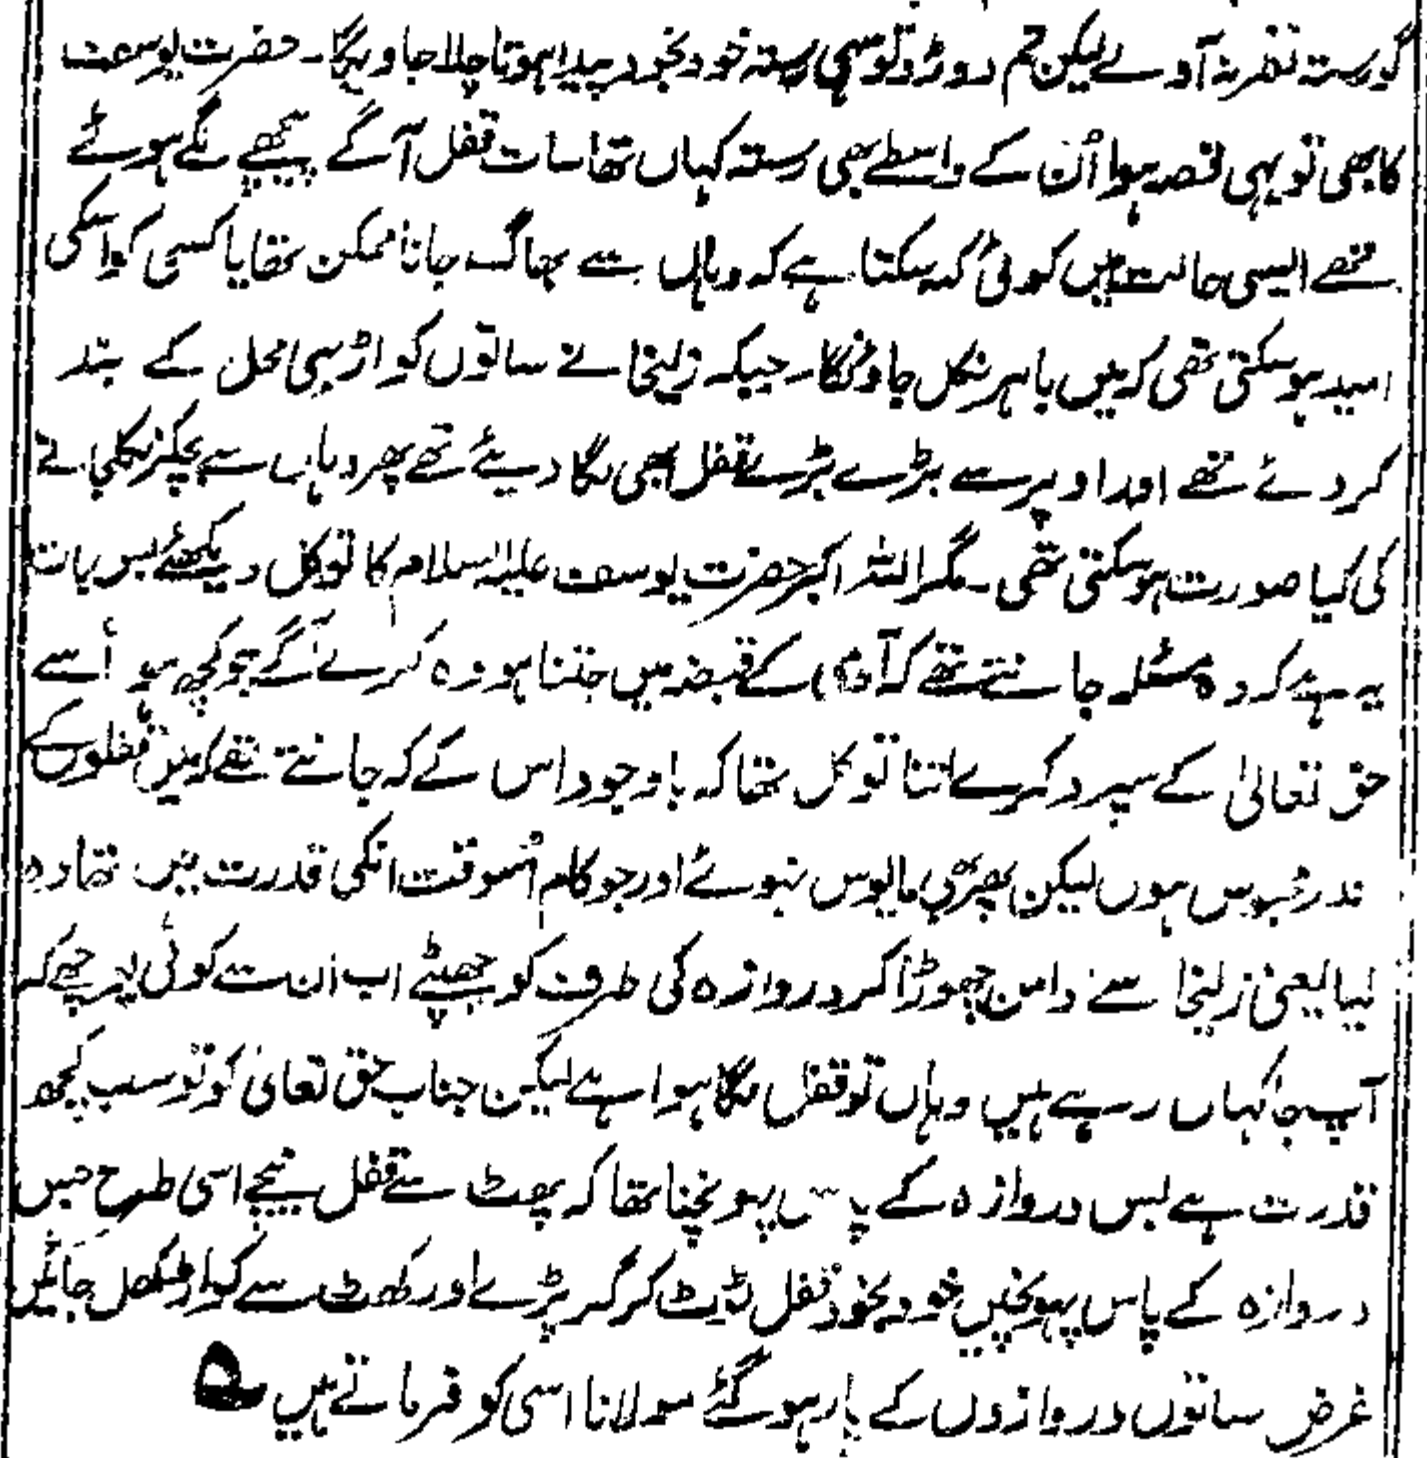 گورستہ نظر نہ آوے لیکن تم دوڑو تو سہی رستہ خود بخود پیدا ہوتا چلا جاویگا۔ حضرت یوسف
کا بھی تو یہی قصہ ہوا اُن کے واسطے بھی رستہ کہاں تھا سات قفل آگے پیچھے لگے ہوئے
تھے ایسی حالت میں کوئی کہہ سکتا ہے کہ وہاں سے بھاگ جانا ممکن تھا یا کسی کو اسکی
امید ہوسکتی تھی کہ میں باہر نکل جاونگا۔ جبکہ زلیخا نے ساتوں کواڑ بھی محل کے بند
کر دئے تھے اور اوپر سے بڑے بڑے قفل بھی لگا دیئے تھے پھر وہاں سے بچکر نکلجانے
کی کیا صورت ہوسکتی تھی۔ مگر اللہ اکبر حضرت یوسف علیہ السلام کا توکل دیکھئے بس بات
یہ ہے کہ وہ مسئلہ جانتے تھے کہ آدمی کے قبضہ میں جتنا ہو وہ کرے آگے جو کچھ ہو اُسے
حق تعالیٰ کے سپرد کرے اتنا توکل تھا کہ باوجود اس کے کہ جانتے تھے کہ میں قفلوں کے
اندر محبوس ہوں لیکن پھر بھی مایوس نہوئے اور جو کام اُسوقت انکی قدرت میں تھا وہ
کیا یعنی زلیخا سے دامن چھوڑا کر دروازہ کی طرف کو جھپٹے اب ان سے کوئی پوچھے کہ
آپ جا کہاں رہے ہیں وہاں تو قفل لگا ہوا ہے لیکن جناب حق تعالیٰ کو تو سب کچھ
قدرت ہے بس دروازہ کے پاس پہونچنا تھا کہ پھٹ سے قفل نیچے اسی طرح جس
دروازہ کے پاس پہونچیں خود بخود قفل ٹوٹ کر گر پڑے اور کھٹ سے کواڑ کھل جائیں
غرض ساتوں دروازوں کے پار ہوگئے مولانا اسی کو فرماتے ہیں ؎